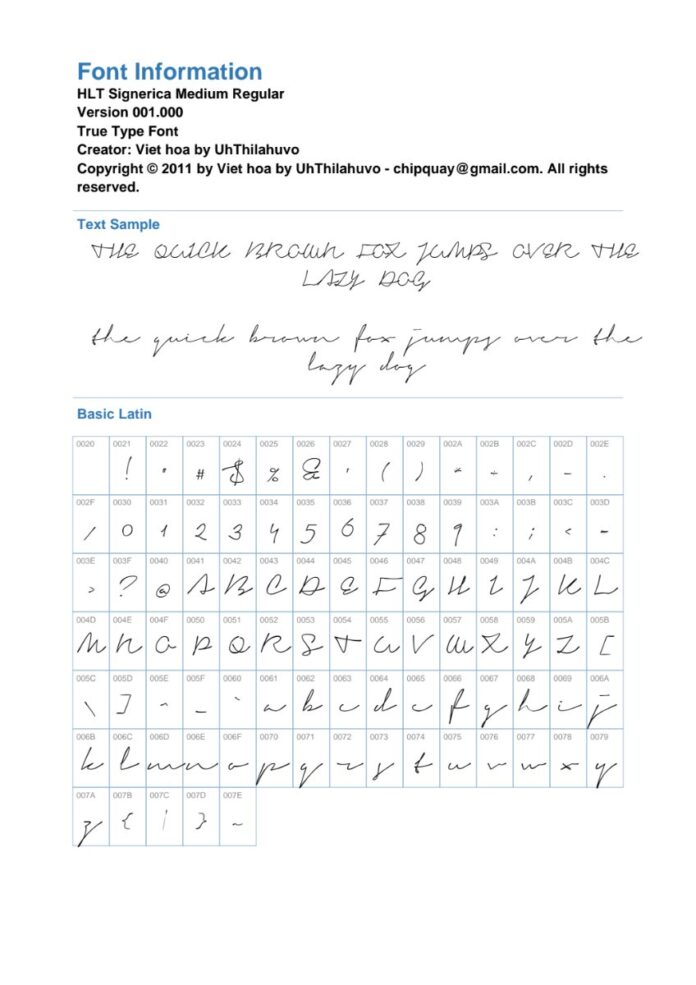 Font Information
HLT Signerica Medium Regular
Version 001.000
True Type Font
Creator: Viet hoa by UhThilahuvo
Copyright © 2011 by Viet hoa by UhThilahuvo - chipquay@gmail.com. All rights
reserved.
Text Sample
THE QUICK BROWN FOX JUMPS OVER THE
LAZY DOG
the quick brown fox jumps over the
lazy dog
Basic Latin
0020 0021 0022 0023 0024 0025 0026 0027 0028 0029 002A 002B 002C 002D 002E
! " # $ % & ' ( ) * + , - .
002F 0030 0031 0032 0033 0034 0035 0036 0037 0038 0039 003A 003B 003C 003D
/ 0 1 2 3 4 5 6 7 8 9 : ; < =
003E 003F 0040 0041 0042 0043 0044 0045 0046 0047 0048 0049 004A 004B 004C
> ? @ A B C D E F G H I J K L
004D 004E 004F 0050 0051 0052 0053 0054 0055 0056 0057 0058 0059 005A 005B
M N O P Q R S T U V W X Y Z [
005C 005D 005E 005F 0060 0061 0062 0063 0064 0065 0066 0067 0068 0069 006A
\ ] ^ _ ` a b c d e f g h i j
006B 006C 006D 006E 006F 0070 0071 0072 0073 0074 0075 0076 0077 0078 0079
k l m n o p q r s t u v w x y
007A 007B 007C 007D 007E
z { | } ~